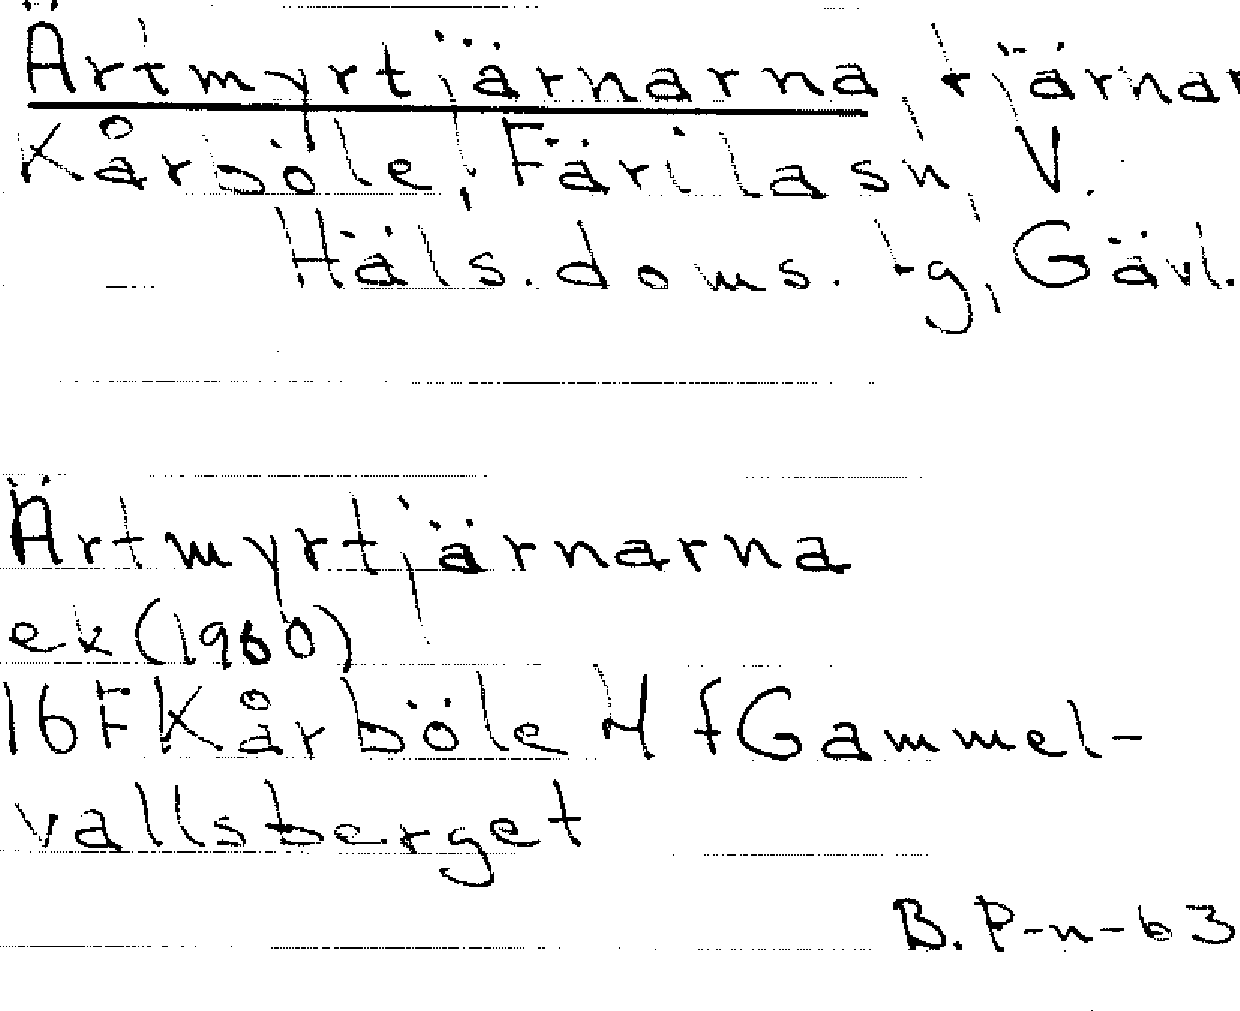 Ärtmyrtjärnarna, tjärnar
Kårböle, Färila sn, V.
Häls. doms. tg, Gävl.
Ärtmyrtjärnarna
ek (1960)
16F Kårböle 4 f Gammel-
vallsberget
B. P-n-63